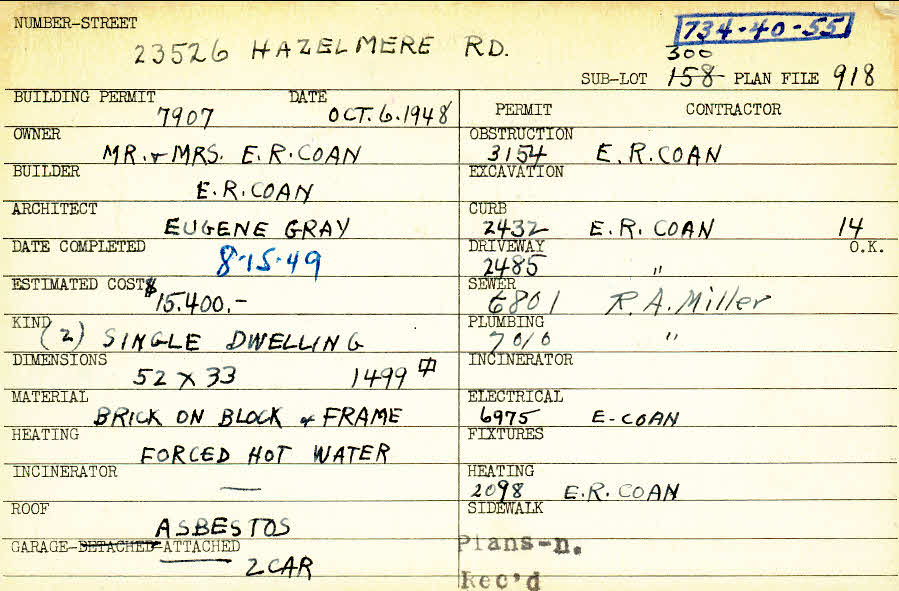 NUMBER-STREET
23526 HAZELMERE RD.
734-40-55
300
SUB-LOT 158 PLAN FILE 918
BUILDING PERMIT DATE
7907 OCT. 6. 1948
OWNER
MR. & MRS. E. R. COAN
BUILDER
E. R. COAN
ARCHITECT
EUGENE GRAY
DATE COMPLETED
8-15-49
ESTIMATED COST $
15.400.-
KIND
(2) SINGLE DWELLING
DIMENSIONS
52 X 33 1499
MATERIAL
BRICK ON BLOCK & FRAME
HEATING
FORCED HOT WATER
INCINERATOR
—
ROOF
ASBESTOS
GARAGE-DETACHED-ATTACHED
2 CAR
PERMIT CONTRACTOR
OBSTRUCTION
3154 E. R. COAN
EXCAVATION
CURB
2432 E. R. COAN 14
DRIVEWAY O.K.
2485 "
SEWER
6801 R. A. Miller
PLUMBING
7010 "
INCINERATOR
ELECTRICAL
6975 E-COAN
FIXTURES
HEATING
2098 E. R. COAN
SIDEWALK
Plans-n.
Rec'd